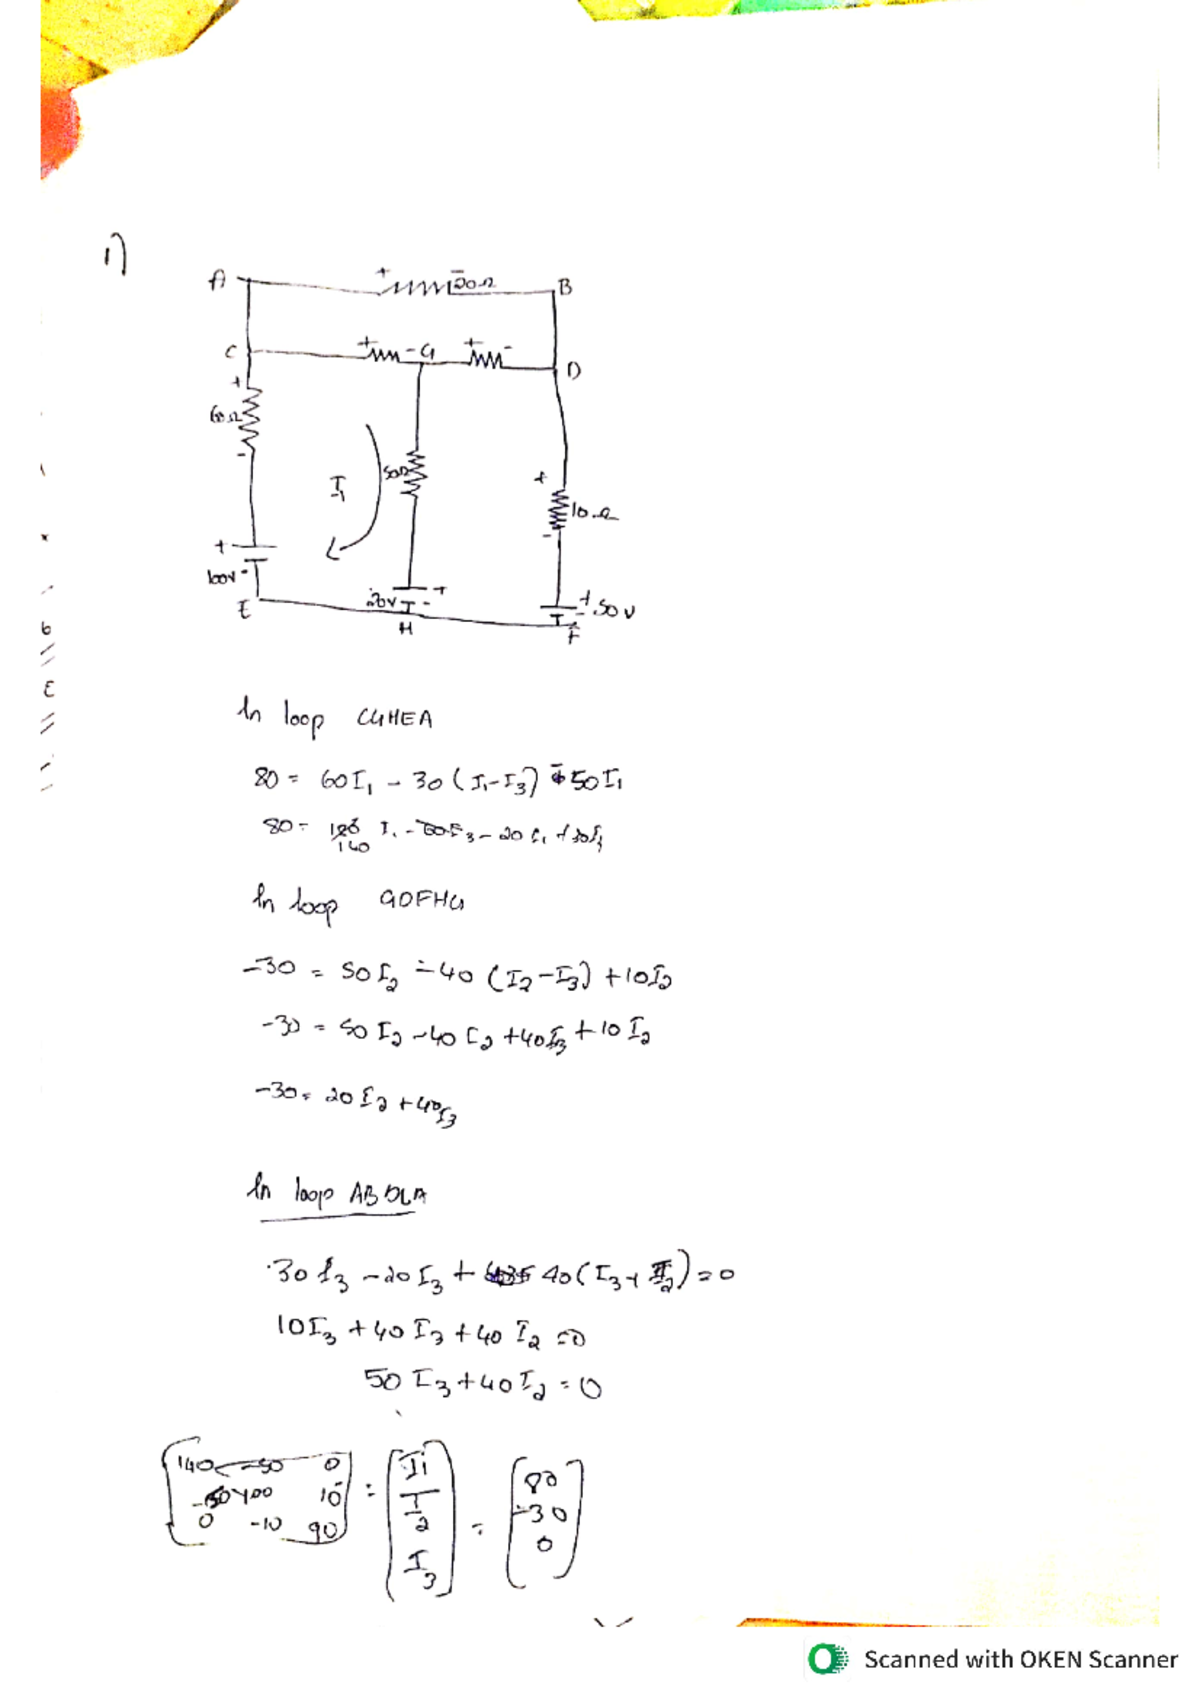 1)
A + - 20Ω B
C + - G + - D
+
60Ω
-
I₁
50Ω
+
10Ω
-
+
100V -
E
20V + -
H
+ 50V
-
F
In loop CGHEA
80 = 60I₁ - 30(I₁-I₃) 50I₁
80 =
140
In loop GDFHG
-30 = 50I₂ - 40(I₂-I₃) + 10I₂
-30 = 50I₂ - 40I₂ + 40I₃ + 10I₂
-30 = 20I₂ + 40I₃
In loop ABDCA
30I₃ - 20I₃ + 40(I₃+I₂) = 0
10I₃ + 40I₃ + 40I₂ = 0
50I₃ + 40I₂ = 0
140 -50 0 I₁ 80
-50 100 10 : I₂ = -30
0 -10 90 I₃ 0
Scanned with OKEN Scanner